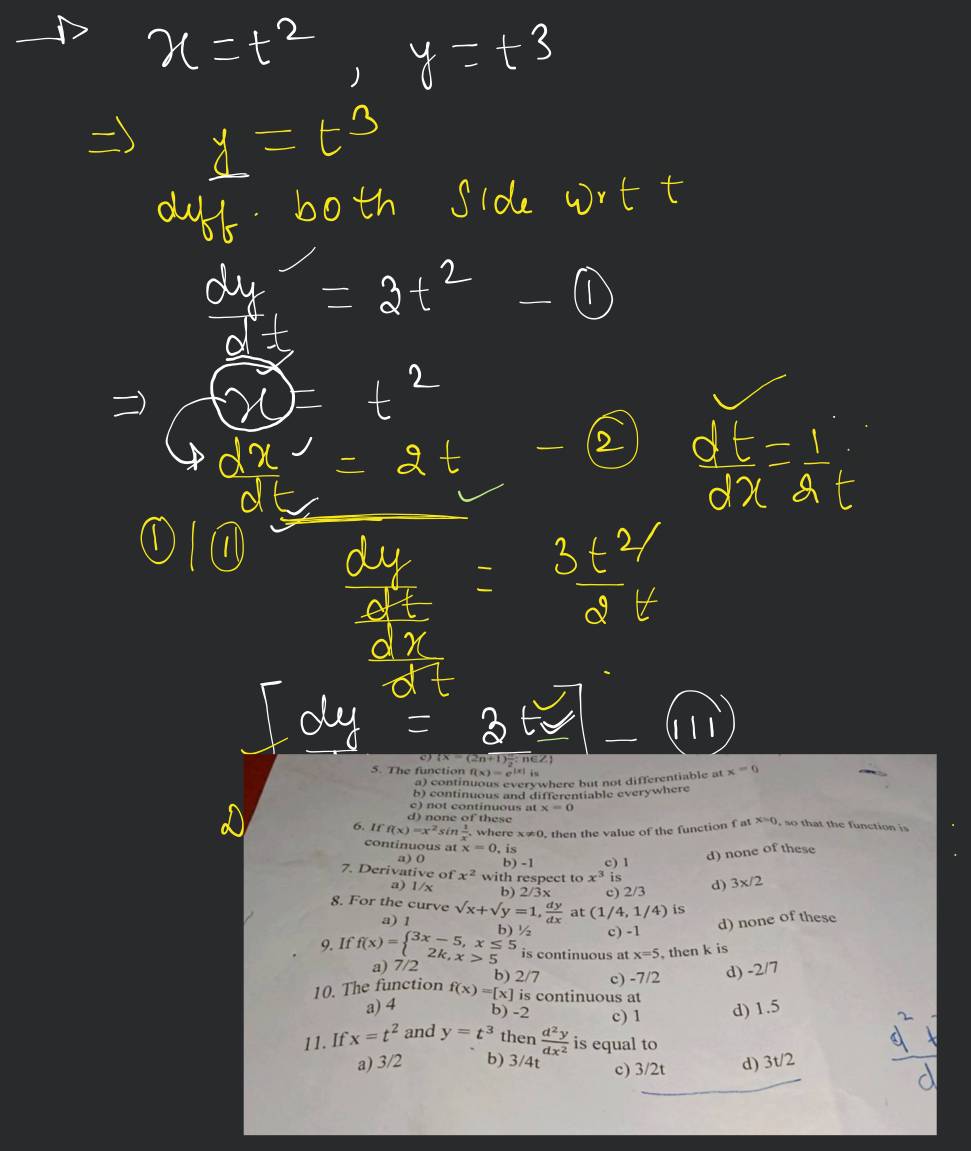 x = t² , y = t³
⇒ y = t³
diff. both side wrt t
dy/dt = 3t² – ①
⇒ x = t²
dx/dt = 2t – ② dt/dx = 1/2t
①/⑪ dy/dt / dx/dt = 3t²/2t
[dy = 3t] – (III)
5. The function f(x) = e^|x| is
a) continuous everywhere but not differentiable at x = 0
b) continuous and differentiable everywhere
c) not continuous at x = 0
d) none of these
6. If f(x) =x² sin 1/x, where x≠0, then the value of the function f at x=0, so that the function is
continuous at x = 0, is
a) 0 b) -1 c) 1 d) none of these
7. Derivative of x² with respect to x³ is
a) 1/x b) 2/3x c) 2/3 d) 3x/2
8. For the curve √x+√y =1, dy/dx at (1/4, 1/4) is
a) 1 b) ½ c) -1 d) none of these
9. If f(x) = {3x − 5, x ≤ 5
2k, x > 5 is continuous at x=5, then k is
a) 7/2 b) 2/7 c) -7/2 d) -2/7
10. The function f(x) =[x] is continuous at
a) 4 b) -2 c) 1 d) 1.5
11. If x = t² and y = t³ then d²y/dx² is equal to
a) 3/2 b) 3/4t c) 3/2t d) 3t/2